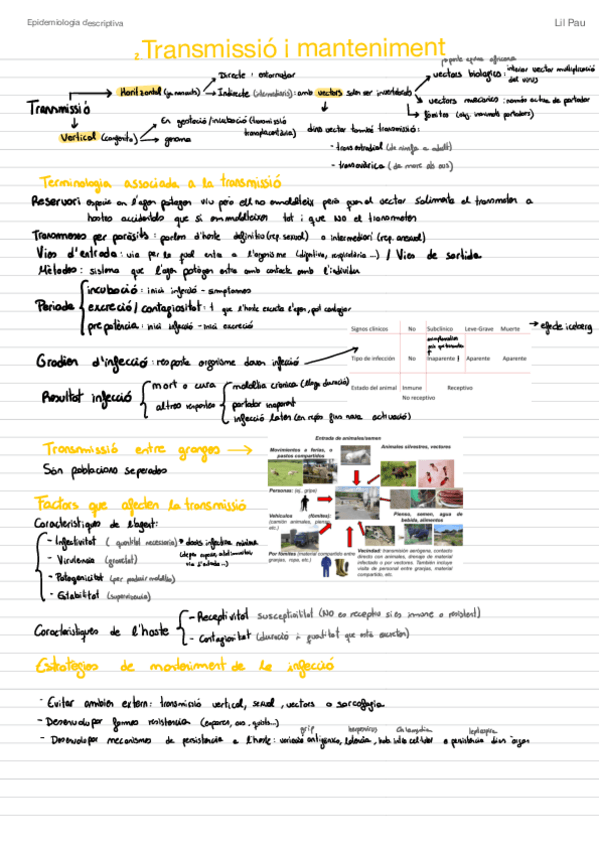 Epidemiologia descriptiva
Lil Pau
2 Transmissió i manteniment
Transmissió
Horitzontal
Directe : estornudar
Indirecte (intermediaris) : amb vectors solen ser invertebrats
vectors biologics : interior vector multiplicació del virus
vectors mecanics : només actua de portador
fómites (obj. inanimats portadors)
Vertical (congenita)
En gestació/incubació (transmissió transplacentària)
genoma
dins vector també transmissió:
- transestadial (de nimfa a adult)
- transovàrica (de mare als ous)
Terminologia associada a la transmissió
Reservori espècie en l'agen patogen viu però ell no emmalalteix però quan el vector s'alimenta el transmeten a
hostes accidentals que si emmalalteixen tot i que NO el transmeten
Transmesos per paràsits : parlem d'hoste definitiu (rep. sexual) o intermediari (rep. asexual)
Vies d'entrada : via per la qual entra a l'organisme (digestiva, respiratòria ...) / Vies de sortida
Mètodes : sistema que l'agen patògen entra amb contacte amb l'individu
Període
incubació : inici infecció - simptomes
excreció / contagiositat : t que l'hoste excreta l'agen, pot contagiar
prepatència : inici infecció - inici excreció
Signos clínicos No Subclínico Leve-Grave Muerte
efecte iceberg
Tipo de infección No Inaparente ! Aparente Aparente
Estado del animal Inmune Receptivo
No receptivo
Gradien d'infecció : resposta organisme davan infecció
Resultat infecció
mort o cura
altres respostes
malaltia crònica (llarga duració)
portador inaparent
infecció laten (en repòs fins nova activació)
Transmissió entre granges
Són poblacions separades
Entrada de animales/semen
Movimientos a ferias, o pastos compartidos
Animales silvestres, vectores
Personas: (ej., gripe)
Vehículos (fómites): (camión animales, pienso, etc.)
Pienso, semen, agua de bebida, alimentos
Por fómites (material compartido entre granjas, ropa, etc.)
Vecindad: transmisión aerógena, contacto directo con animales, drenaje de material infectado o por vectores. También incluye visita de personal entre granjas, material compartido, etc.
Factors que afecten la transmissió
Característiques de l'agent:
- Infectivitat (quantitat necessaria) * dosis infectiva mínima
- Virulencia (gravetat)
- Patogenicitat (per produir malaltia)
- Estabilitat (supervivencia)
Característiques de l'hoste
- Receptivitat susceptibilitat (NO es receptiu si es immune o resistent)
- Contagiositat (duració i quantitat que està excretan)
Estratègies de manteniment de la infecció
- Evitar ambien extern: transmissió vertical, sexual, vectors o sarcofagia
- Desenvolupar formes resistencia (espores, ous, quists...)
grip herpesvirus Chlamydia leptospira
- Desenvolupar mecanismes de persistencia a l'hoste : variació antigènica, latencia,